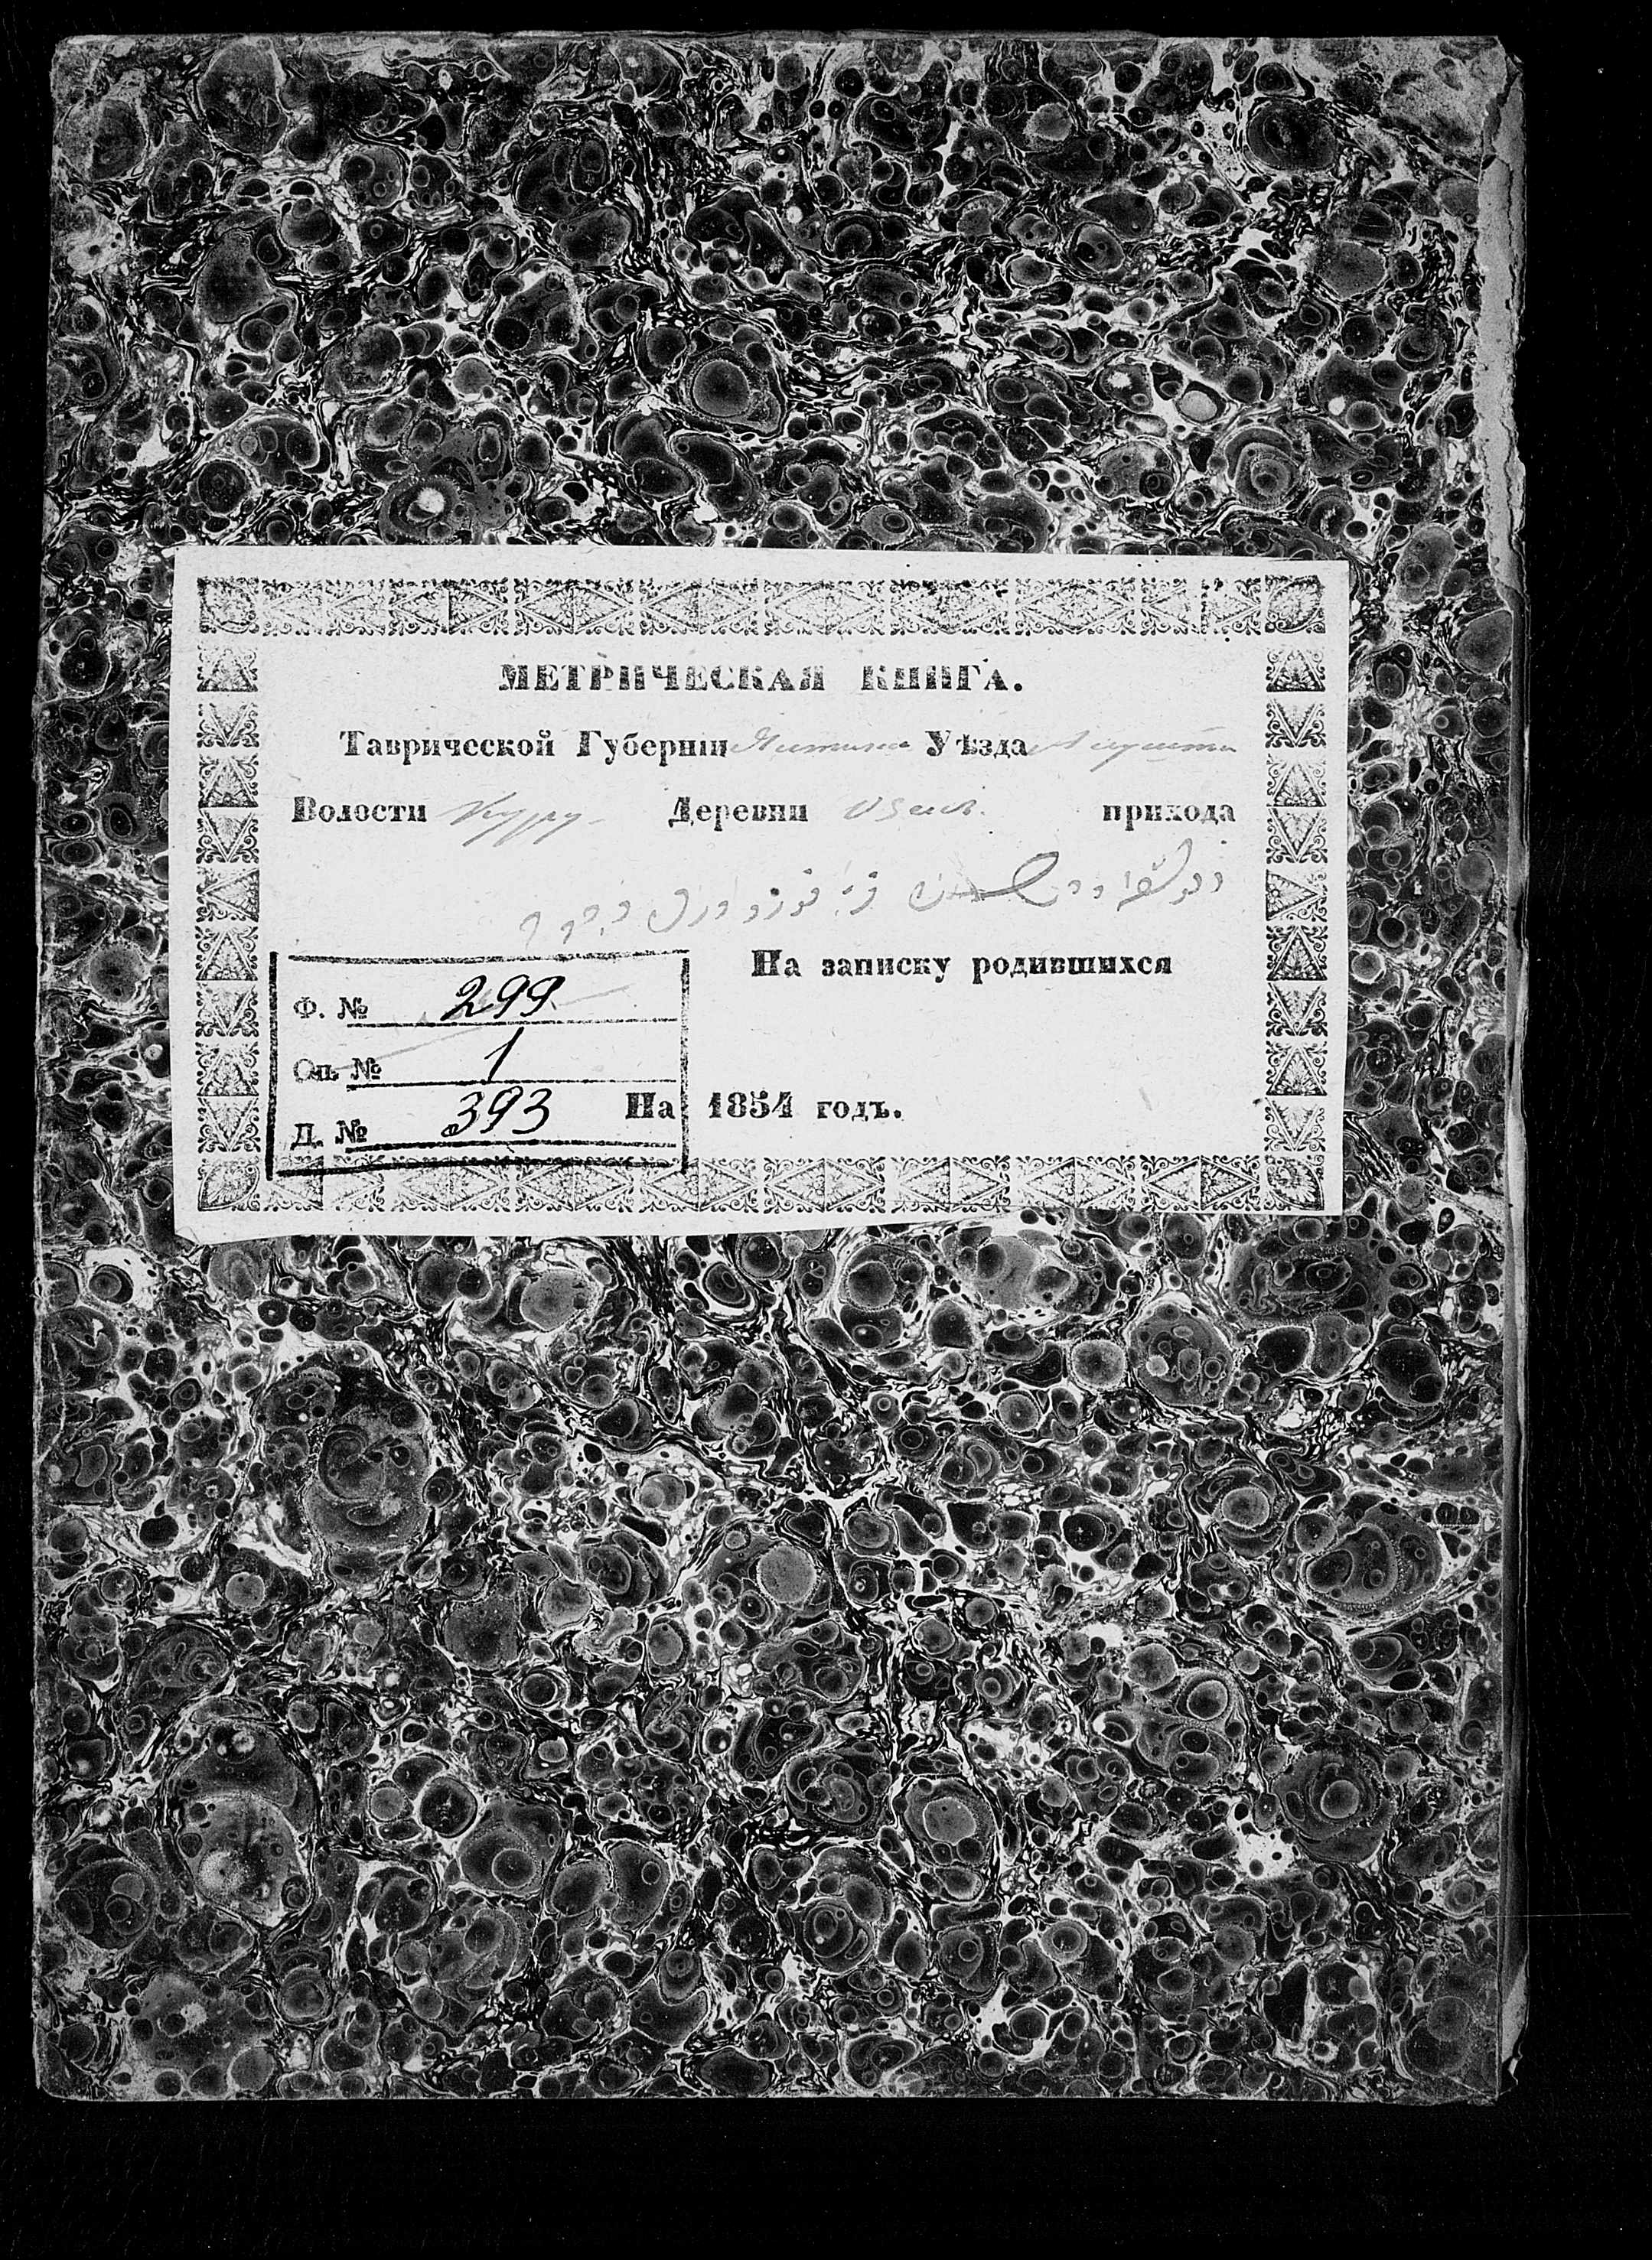 МЕТРИЧЕСКАЯ КНИГА.
Таврической Губерніи Уѣзда
Волости Куру- Деревни Озень. прихода
На записку родившихся
Ф. № 299
Оп. № 1
Д. № 393
На 1854 годъ.